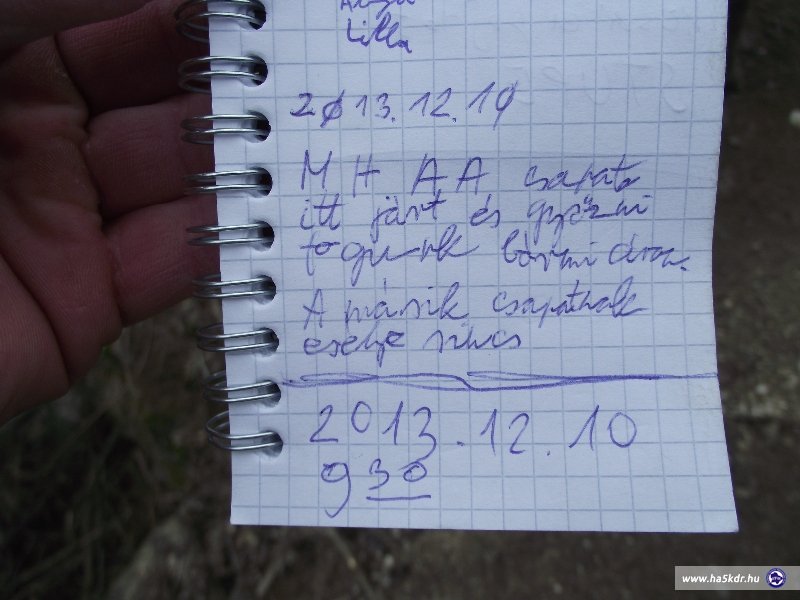 Lilla
2013.12.10
MH AA csapata
itt járt és győzni
fogunk bármi áron.
A másik csapatnak
esélye sincs
2013.12.10
9 30
www.ha5kdr.hu